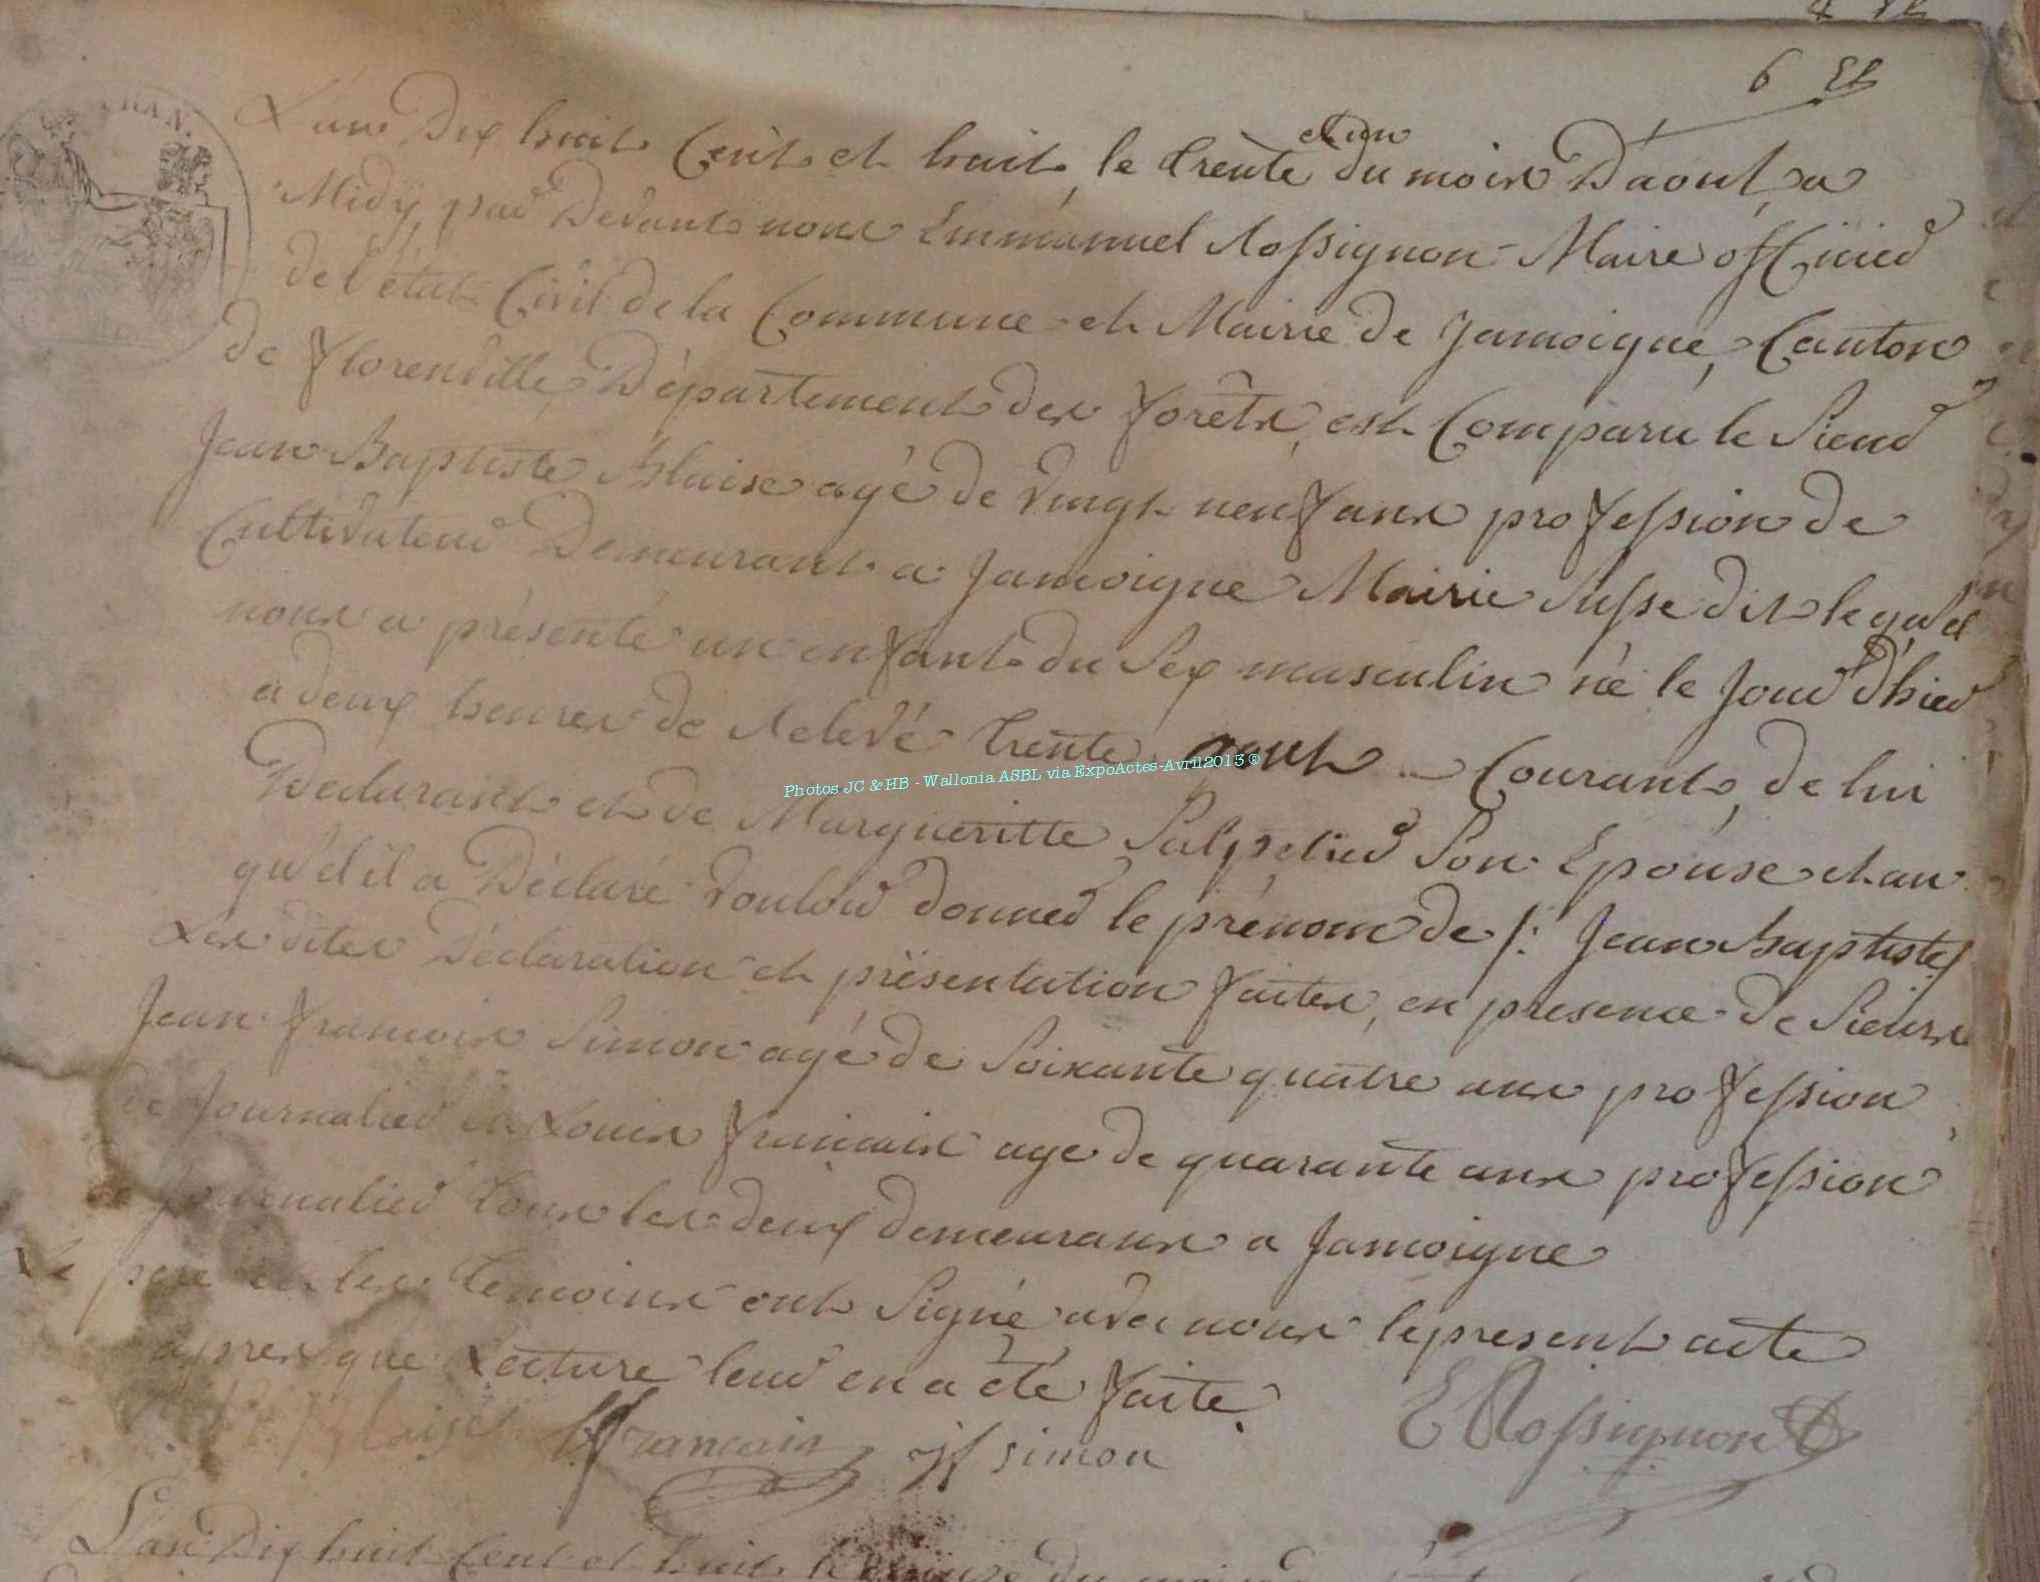 6
L'an Dix huit Cent et huit, le trente et un du mois D'aout, a
Midy par Devant nous Emmanuel Rossignon Maire officier
de l'état Civil de la Commune et Mairie de Jamoigne, Canton
de florenville, Département des forêts, est Comparu le Sieur
Jean Baptiste Blaise agé de vingt neuf ans profession de
Cultivateur Demeurant a Jamoigne Mairie Susse dit lequel
nous a présenté un enfant du Sex masculin né le Jour d'hier
a deux heures de Relevé trente aout Courant, de lui
Declarant et de Margueritte Salpetier Son Epouse et au
qu'el il a Déclaré vouloir donner le prénom de /: Jean Baptiste/
Les dites Déclaration et présentation faites, en presence de Sieurs
Jean francois Simon agé de Soixante quatre ans profession
de Journalier et Louis francais age de quarante ans profession
de journalier tous les deux demeurans a Jamoigne
Le pere et les temoins ont Signé avec nous le present acte
apres que Lecture leur en a eté faite.
Blaise francais jf simon E Rossignon
L'an Dix huit Cent et huit le
Photos JC & HB - Wallonia ASBL via ExpoActes-Avril2013 ©